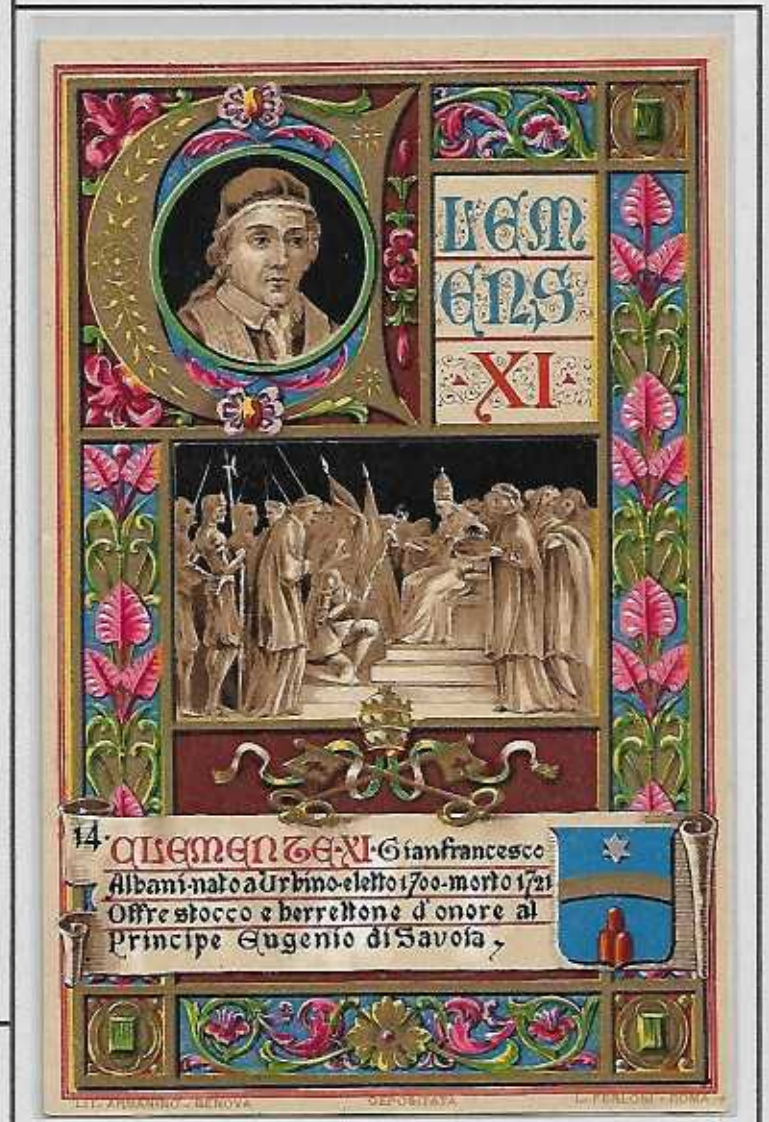 CLEM
ENS
XI
14. CLEMENTE·XI·Gianfrancesco
Albani·nato a Urbino·eletto 1700·morto 1721
Offre stocco e berrettone d'onore al
Principe Eugenio di Savoia,
LIT. ARMANINO - GENOVA DEPOSITATA L. FERLONI - ROMA